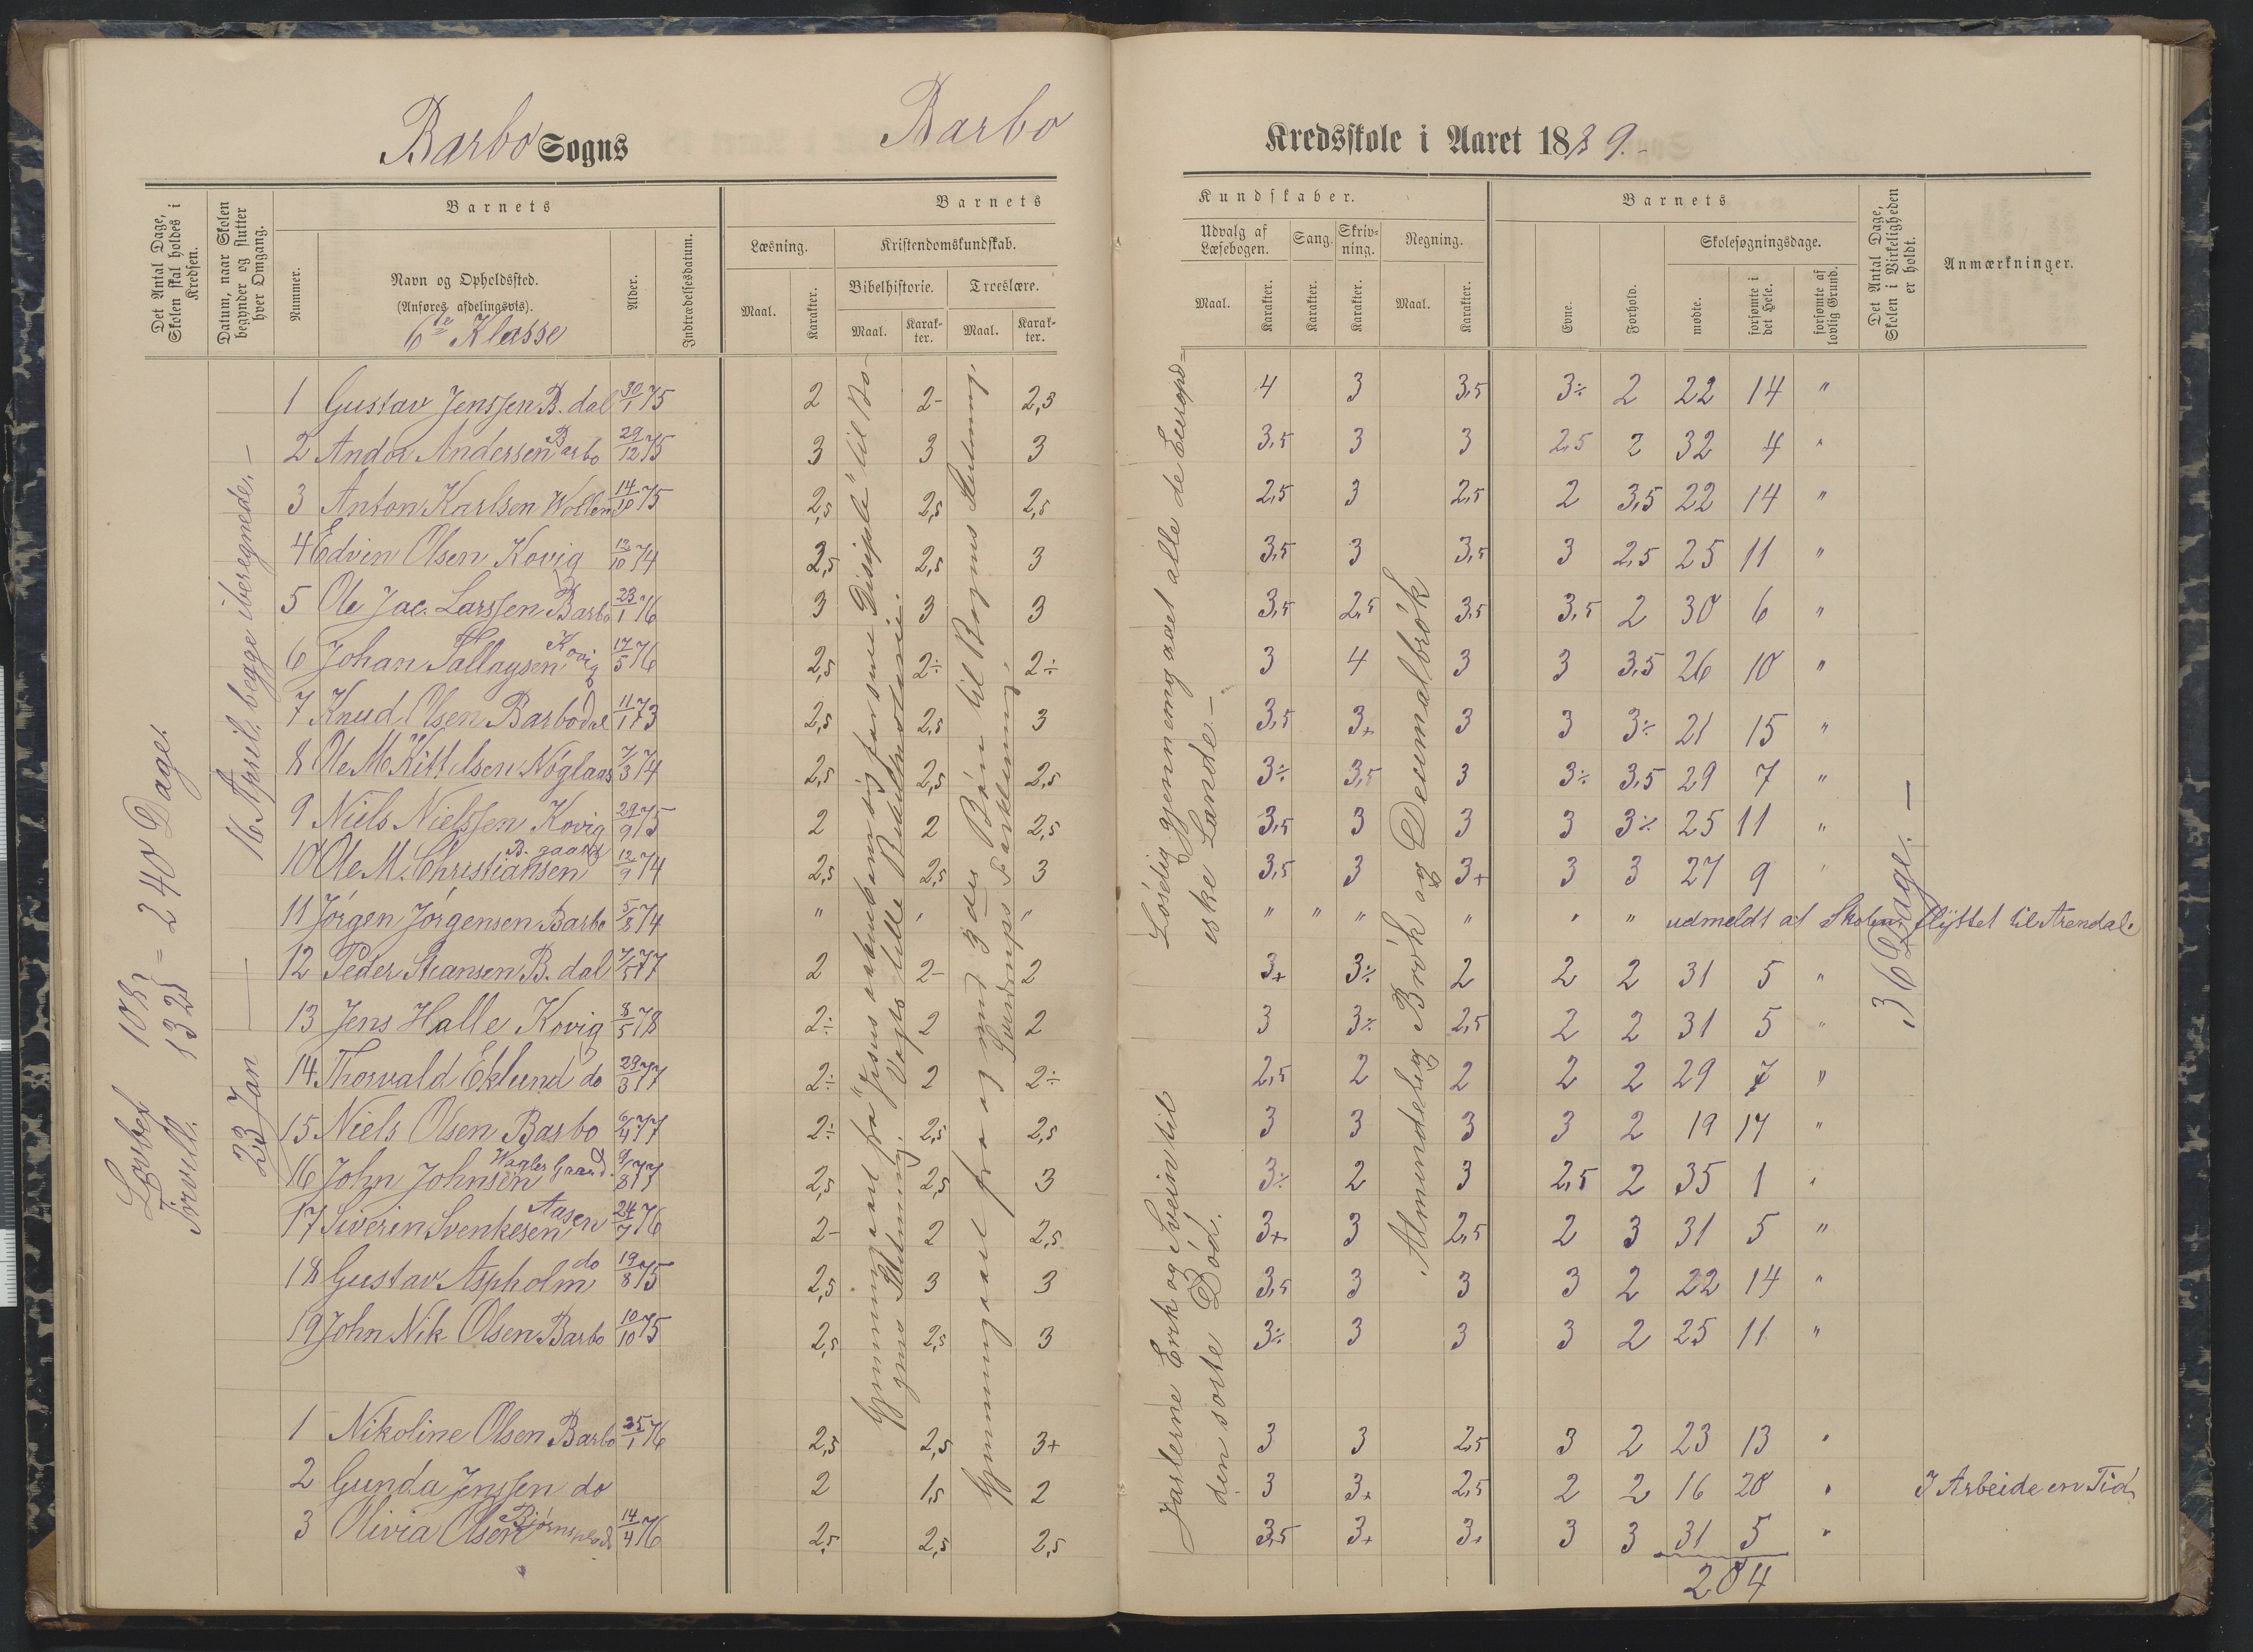 Barbo Sogns Barbo Kredsskole i Aaret 1889.-
Det Antal Dage, Skolen skal holdes i Kredsen.
Datum, naar Skolen begynder og slutter hver Omgang.
Barnets
Nummer.
Navn og Opholdssted.
(Anføres afdelingsvis).
6te Klasse
Alder.
Indtrædelsesdatum.
Barnets
Læsning.
Maal.
Karakter.
Kristendomskundskab.
Bibelhistorie.
Maal.
Karakter.
Troeslære.
Maal.
Karakter.
Kundskaber.
Udvalg af Læsebogen.
Maal.
Karakter.
Sang.
Karakter.
Skrivning.
Karakter.
Regning.
Maal.
Karakter.
Barnets
Evne.
Forhold.
Skolesøgningsdage.
mødte.
forsømte i det Hele.
forsømte af lovlig Grund.
Det Antal Dage, Skolen i Virkeligheden er holdt.
Anmærkninger.
Lovbef. 108
Frivill. 132 = 240 Dage.
23 Jan — 16 April, begge iberegnede. —
1 Gustav Jenssen B. dal 30/1 75 2 2- 2,5 4 3 3,5 3÷ 2 22 14 "
2 Andor Andersen Barbo 29/12 75 3 3 3 3,5 3 3 2,5 2 32 4 "
3 Anton Karlsen Wollen 14/10 75 2,5 2,5 2,5 2,5 3 2,5 2 3,5 22 14 "
4 Edvin Olsen Kovig 13/10 74 2,5 2,5 3 3,5 3 3,5 3 2,5 25 11 "
5 Ole Jac. Larssen Barbo 23/1 76 3 3 3 3,5 2,5 3,5 3,5 2 30 6 "
6 Johan Tallaksen Kovig 17/5 76 2,5 2÷ 2÷ 3 4 3 3 3,5 26 10 "
7 Knud Olsen Barbodal 11/1 73 2,5 2,5 3 3,5 3+ 3 3 3÷ 21 15 "
8 Ole M Kittelsen Nøglaas 7/3 74 2,5 2,5 2,5 3÷ 3,5 3 3÷ 3,5 29 7 "
9 Niels Nielssen Kovig 29/9 75 2 2 2,5 3,5 3 3 3 3÷ 25 11 "
10 Ole M. Christiansen B. gaard 12/9 74 2,5 2,5 3 3,5 3 3+ 3 3 27 9 "
11 Jørgen Jørgensen Barbo 5/8 74 " " " " " " " " " udmeldt af Skolen, flyttet til Arendal.
12 Peder Stiansen B. dal 7/5 77 2 2- 2 3+ 3÷ 2 2 2 31 5 "
13 Jens Halle Kovig 8/5 78 2÷ 2 2 3 3÷ 2,5 2 2 31 5 "
14 Thorvald Eklund do 29/3 77 2÷ 2 2÷ 2,5 2 2 2 2 29 7 "
15 Niels Olsen Barbo 6/4 77 2÷ 2,5 2,5 3 3 3 3 2 19 17 "
16 John Johnsen Wagles Gaard. 9/8 73 2,5 2,5 3 3÷ 2 3 2,5 2 35 1 "
17 Siverin Svenkesen Aasen 24/7 76 2- 2 2,5 3+ 3 2,5 2 3 31 5 "
18 Gustav Aspholm do 19/8 75 2,5 3 3 3,5 3 3 3 2 22 14 "
19 John Nik Olsen Barbo 10/10 75 2,5 2,5 3 3÷ 3 3 3 2 25 11 "
1 Nikoline Olsen Barbo 25/1 76 2,5 2,5 3+ 3 3 2,5 3 2 23 13 "
2 Gunda Jenssen do 2 1,5 2 3 3+ 2,5 2 2 16 20 " I Arbeide en Tid
3 Olivia Olsen 14/4 76 2,5 2,5 2,5 3,5 3+ 3+ 3 3 31 5 "
204
Gjennemgaaet fra "Jesus aabenbarer sig for sine Disciple" til Bogens Slutning. Vogts lille Bibelhistorie.
Gjennemgaaet fra og med 3die Bøn til Bogens Slutning, Sverdrups Forklaring.
Jarlerne Erik og Svein til den sorte Død.
Løselig gjennemgaaet alle de Europæiske Lande. —
Almindelig Brøk og Decimalbrøk
36 Dage. —